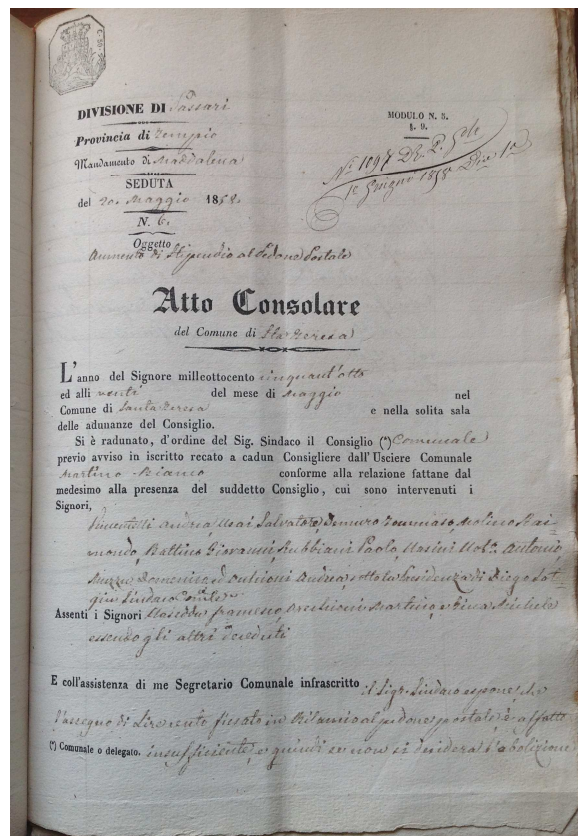 DIVISIONE DI Sassari
Provincia di Tempio
Mandamento di Maddalena
SEDUTA
del 20 Maggio 1858
N. 6.
Oggetto
Aumento di Stipendio al Pedone Postale
MODULO N. 5.
§. 9.
N° 1097 Div. 2. Gle
1° Giugno 1858 Div 1a
Atto Consolare
del Comune di Sta Teresa
L'anno del Signore millcottocento cinquant'otto
ed alli venti del mese di Maggio nel
Comune di Santa Teresa e nella solita sala
delle adunanze del Consiglio.
Si è radunato, d'ordine del Sig. Sindaco il Consiglio (*) Comunale
previo avviso in iscritto recato a cadun Consigliere dall'Usciere Comunale
Martino Bianco conforme alla relazione fattane dal
medesimo alla presenza del suddetto Consiglio, cui sono intervenuti i
Signori,
Andrea, Salvatore, Demuro Tommaso, Molino Rai-
mondo, Battino Giovanni, Rubbiani Paolo, Antonio
Domenico ed Andrea, sotto la Presidenza di Diego
Sindaco
Assenti i Signori Francesco, Martino, e Michele
essendo gli altri deceduti
E coll'assistenza di me Segretario Comunale infrascritto il Sigr. Sindaco espone che
l'assegno di Lire cento fissato in Bilancio al pedone postale è affatto
(*) Comunale o delegato. insufficiente, e quindi se non si desidera l'abolizione